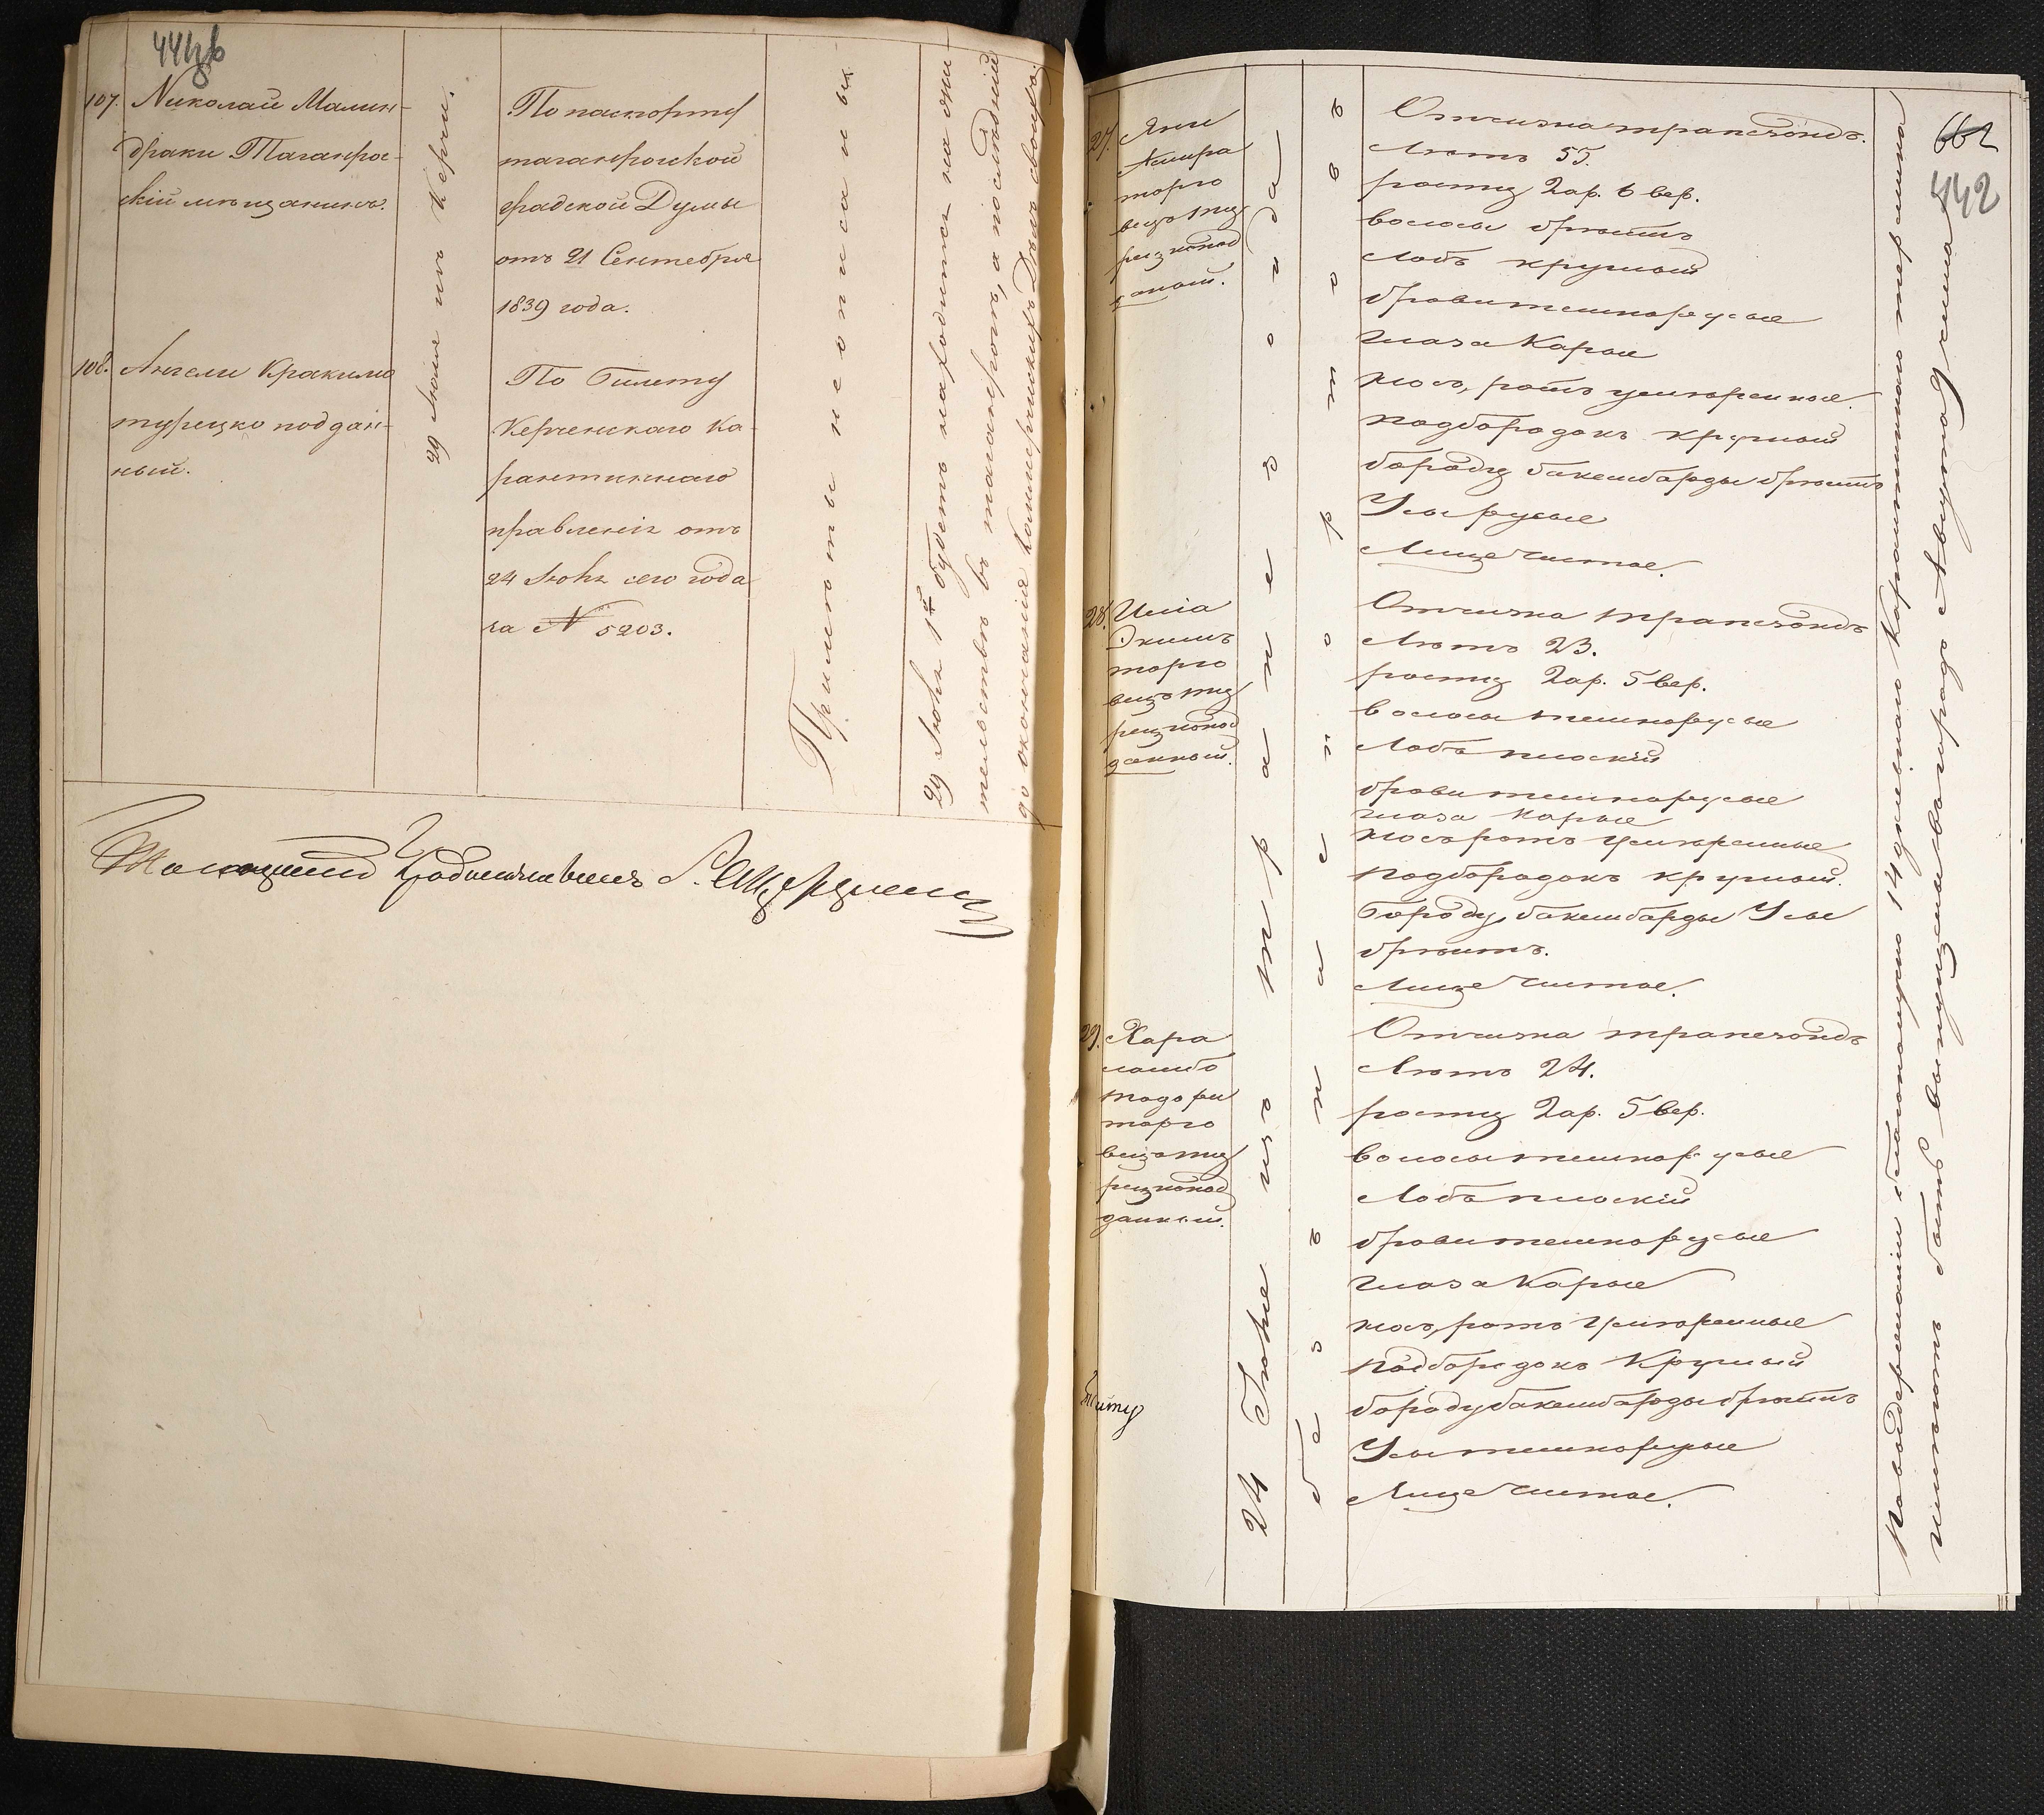 441
107.
Николай Малин-
драки Таганрог-
скій мѣщанинъ.
29 Іюля изъ Керчи.
По паспорту
таганрогской
градской Думы
отъ 21 Сентебря
1839 года.
108.
Ангели Кракими
турецко поддан-
ный.
По Билету
Керченскаго Ка-
рантиннаго
правленія отъ
24 Іюня сего года
за № 5203.
Примѣты неописаны
29 Іюля 1й будетъ находится на жи-
тельствѣ въ таганрогѣ, а последній
до окончанія коммерческихъ Дѣлъ своихъ.
662
442
27.
Яни
торго
вецъ ту
рецкопод
даный.
24 Іюня изъ трапезонда
безъ паспортовъ
Отчизна трапезондъ.
Лѣтъ 55.
росту 2 ар. 6 вер.
волосы брѣитъ
Лобъ круглый
брови темнорусые
глаза Карые
носъ, ротъ умѣренные.
подбородокъ круглый
бороду бакенбарды брѣитъ
Усы русые
Лице чистое.
28.
Иліа
Экимъ
торго
вецъ ту
рецкопод
данный.
Отчизна трапезондъ
Лѣтъ 23.
росту 2 ар. 5 вер.
волосы темнорусые
Лобъ плоскій
брови темнорусые
глаза карые
носъ ротъ умѣренные
подбородокъ круглый.
бороду, бакенбарды Усы
брѣитъ.
Лице чистое.
29.
Хара
лампо
тодори
торго
вецъ ту
рецкопод
данный.
Отчизна трапезондъ
Лѣтъ 24.
росту 2 ар. 5 вер.
волосы темнорусые
Лобъ плоскій
брови темнорусые
глаза Карые
носъ, ротъ умѣренные
подбородокъ Круглый
бороду бакенбарды брѣитъ
Усы темнорусые
Лице чистое.
По выдержаніи обсталующаго 14 дневнаго карантиннаго термина
имѣютъ быть выпущены въ городъ Августа числа